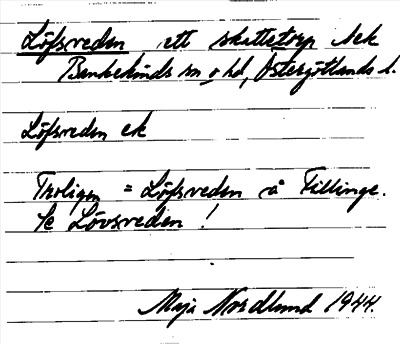 Löfsveden ett skattetorp
Bankekinds sn o hd, Östergötlands l.
Löfsveden ek
Troligen = Löfsveden å Fillinge.
Se Lövsveden!
Maja Nordlund 1944.